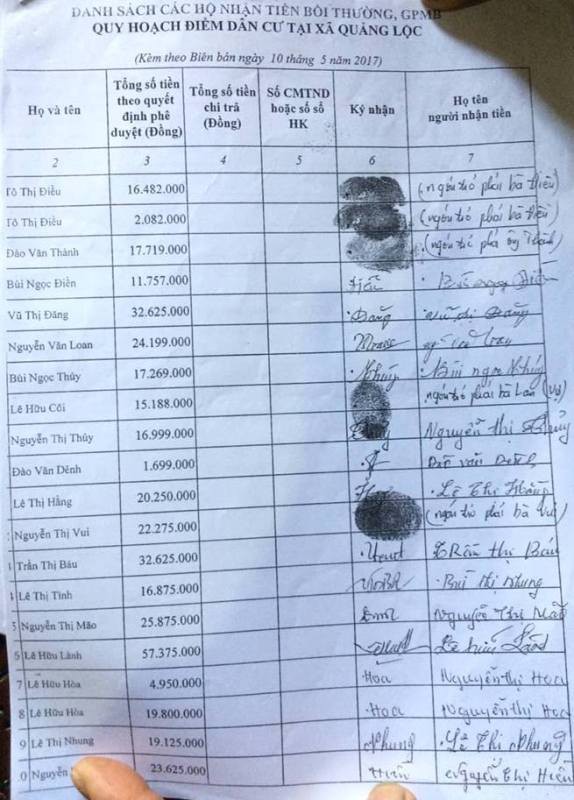 DANH SÁCH CÁC HỘ NHẬN TIỀN BỒI THƯỜNG, GPMB
QUY HOẠCH ĐIỂM DÂN CƯ TẠI XÃ QUẢNG LỘC
(Kèm theo Biên bản ngày 10 tháng 5 năm 2017)
Họ và tên Tổng số tiền theo quyết định phê duyệt (Đồng) Tổng số tiền chi trả (Đồng) Số CMTND hoặc số sổ HK Ký nhận Họ tên người nhận tiền
2 3 4 5 6 7
Tô Thị Điều 16.482.000 (ngón trỏ phải bà Điều)
Tô Thị Điều 2.082.000 (ngón trỏ phải bà Điều)
Đào Văn Thành 17.719.000 (ngón trỏ phải ông Thành)
Bùi Ngọc Điền 11.757.000 Bùi Ngọc Điền
Vũ Thị Đăng 32.625.000 Đăng Vũ Thị Đăng
Nguyễn Văn Loan 24.199.000
Bùi Ngọc Thủy 17.269.000 Bùi ngọc
Lê Hữu Côi 15.188.000 ngón trỏ phải bà Lan (Vợ)
Nguyễn Thị Thủy 16.999.000 Nguyễn Thị Thủy
Đào Văn Dênh 1.699.000
Lê Thị Hằng 20.250.000 Lê Thị Hằng
Nguyễn Thị Vui 22.275.000 (ngón trỏ phải bà Vui)
Trần Thị Báu 32.625.000 Trần Thị Báu
Lê Thị Tình 16.875.000 Bùi Thị Nhung
5 Nguyễn Thị Mão 25.875.000 Nguyễn Thị Mão
6 Lê Hữu Lành 57.375.000 Lê hữu Lành
7 Lê Hữu Hòa 4.950.000 Hoa Nguyễn Thị Hoa
8 Lê Hữu Hòa 19.800.000 Hoa Nguyễn Thị Hoa
9 Lê Thị Nhung 19.125.000 Nhung Lê Thị Nhung
0 Nguyễn 23.625.000 Hiền Nguyễn Thị Hiền